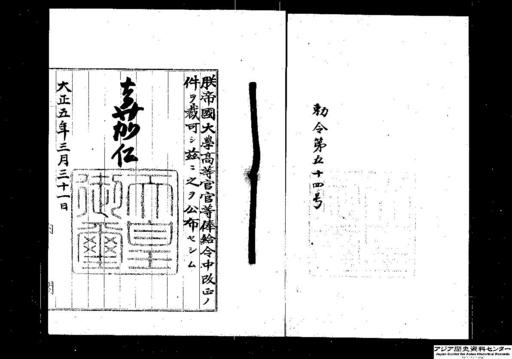 勅令第五十四号
朕帝國大學高等官官等俸給令中改正ノ
件ヲ裁可シ茲ニ之ヲ公布セシム
嘉仁
大正五年三月三十一日
天皇御璽
内閣
アジア歴史資料センター
Japan Center for Asian Historical Records